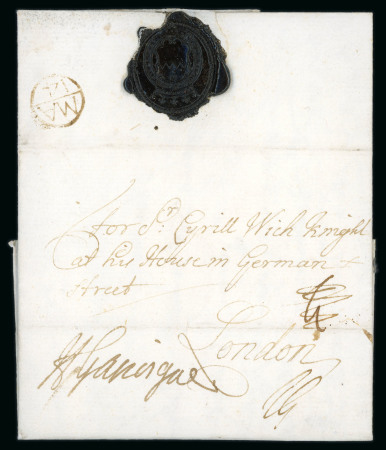 MA
24
for Sr. Cyrill Wich Knight
at his House in German
street
London